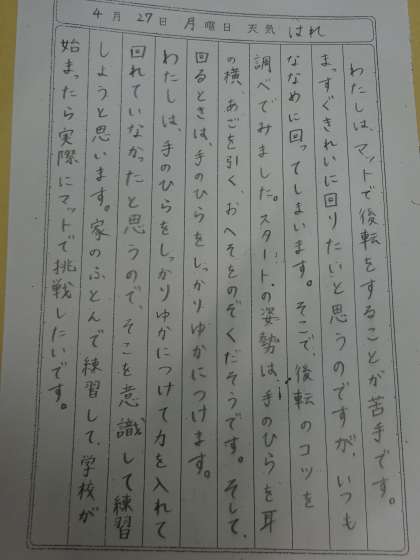 4月27日月曜日天気はれ
わたしは、マットで後転をすることが苦手です。
まっすぐきれいに回りたいと思うのですが、いつも
ななめに回ってしまいます。そこで、後転のコツを
調べてみました。スタートの姿勢は、手のひらを耳
の横、あごを引く、おへそをのぞくだそうです。そして、
回るときは、手のひらをしっかりゆかにつけます。
わたしは、手のひらをしっかりゆかにつけて力を入れて
回れていなかったと思うので、そこを意識して練習
しようと思います。家のふとんで練習して、学校が
始まったら実際にマットで挑戦したいです。